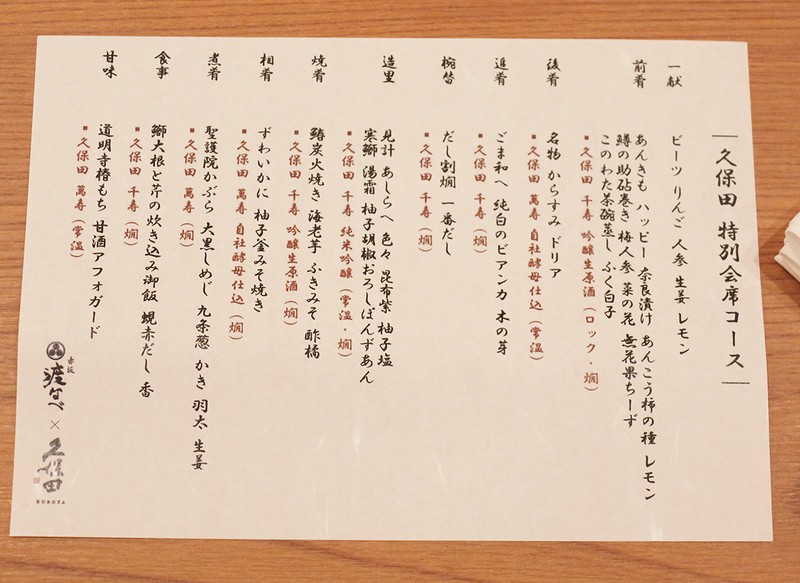 久保田 特別会席コース
一献
ビーツ りんご 人参 生姜 レモン
前肴
あんきも ハッピー 奈良漬け あんこう柿の種 レモン
鱒の助砧巻き 梅人参 菜の花 無花果ちーず
このわた茶碗蒸し ふぐ白子
■久保田 千寿 吟醸生原酒（ロック・燗）
後肴
名物 からすみ ドリア
■久保田 萬寿 自社酵母仕込（常温）
追肴
ごま和へ 純白のビアンカ 木の芽
■久保田 千寿（燗）
椀替
だし割燗 一番だし
■久保田 千寿（燗）
造里
見計 あしらへ 色々 昆布紫 柚子塩
寒鰤 湯霜 柚子胡椒おろしぽんずあん
■久保田 千寿 純米吟醸（常温・燗）
焼肴
鰆炭火焼き 海老芋 ふきみそ 酢橘
■久保田 千寿 吟醸生原酒（燗）
相肴
ずわいかに 柚子釜みそ焼き
■久保田 萬寿 自社酵母仕込（燗）
煮肴
聖護院かぶら 大黒しめじ 九条葱 かき 羽太 生姜
■久保田 萬寿（燗）
食事
鰤大根と芹の炊き込み御飯 蜆赤だし 香
■久保田 千寿（燗）
甘味
道明寺椿もち 甘酒アフォガード
■久保田 萬寿（常温）
赤坂 渡なべ × 久保田
KUBOTA